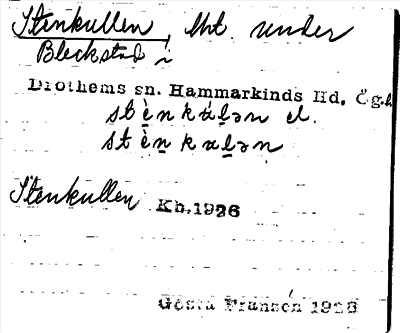 Stenkullen, lht. under
Bleckstad i
Drothems sn. Hammarkinds Hd. Ög.l
stènkúlən el.
stènkulən
Stenkullen Kb.1926
Gösta Fransén 1928